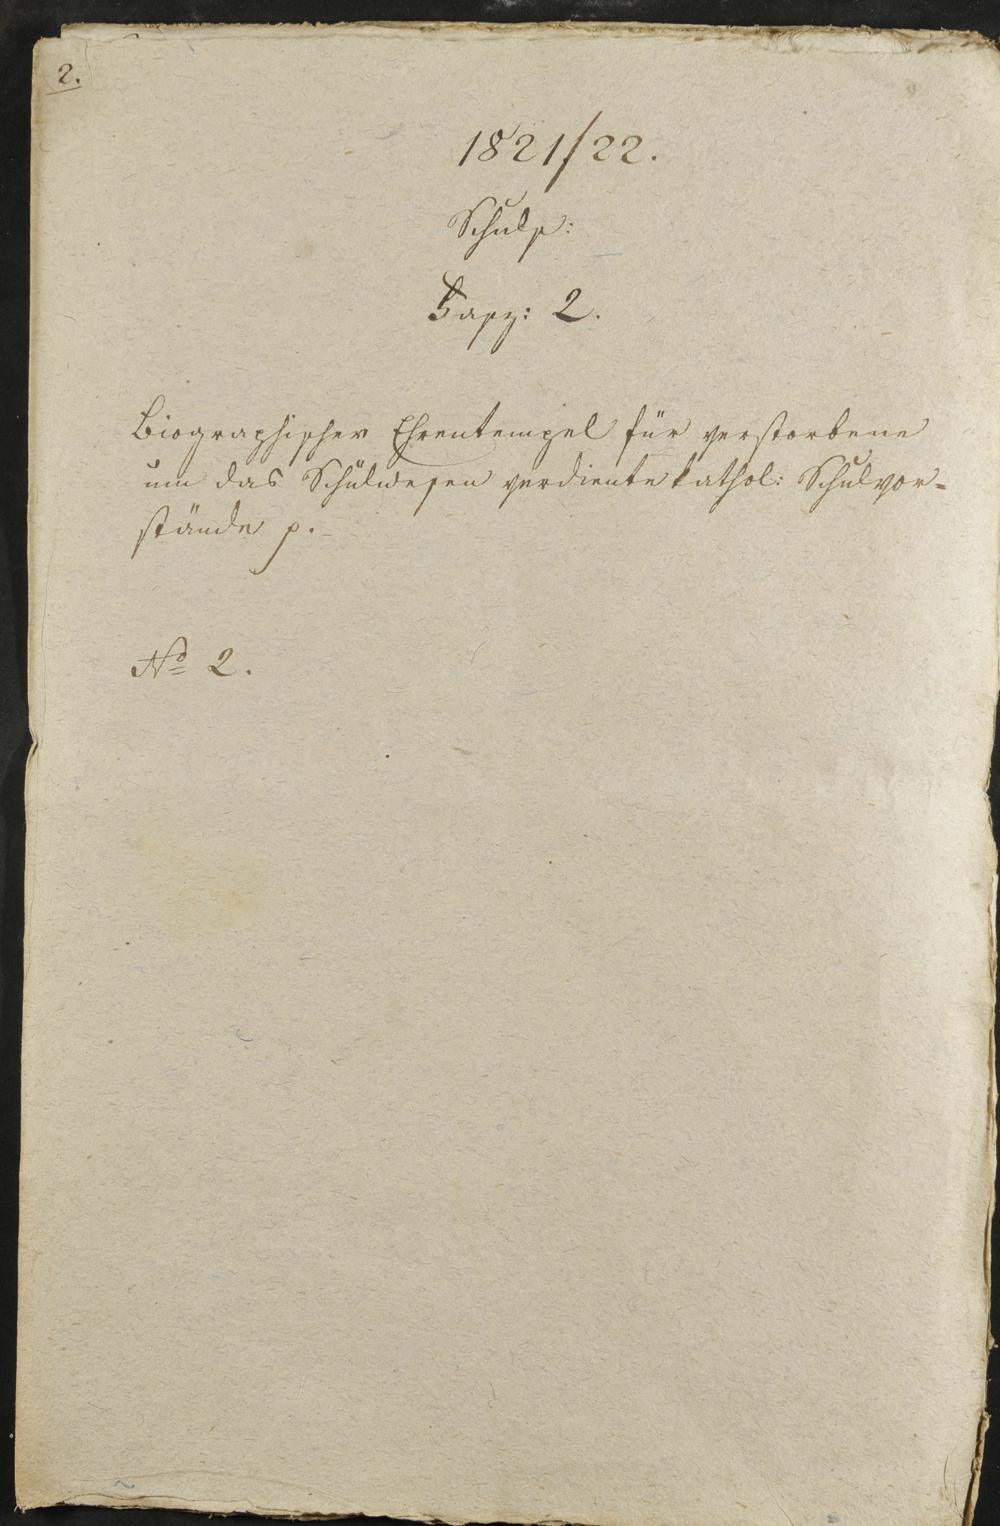 2.
1821/22.
Schuls:
Fasz: 2.
Biographischer Ehrentempel für verstorbene
um das Schulwesen verdiente kathol: Schulvor-
stände p.
No 2.